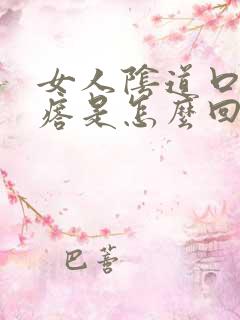 女人陰道口
痞是怎麼回
巴蒼